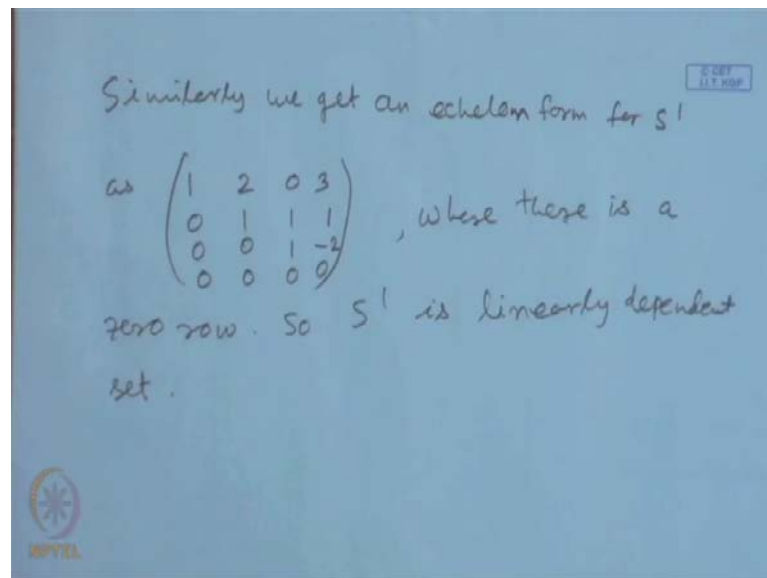 © CET
I.I.T. KGP
Similarly we get an echelon form for S'
as ( 1 2 0 3
0 1 1 1
0 0 1 -2
0 0 0 0 ) , where there is a
zero row. So S' is linearly dependent
set.
NPTEL